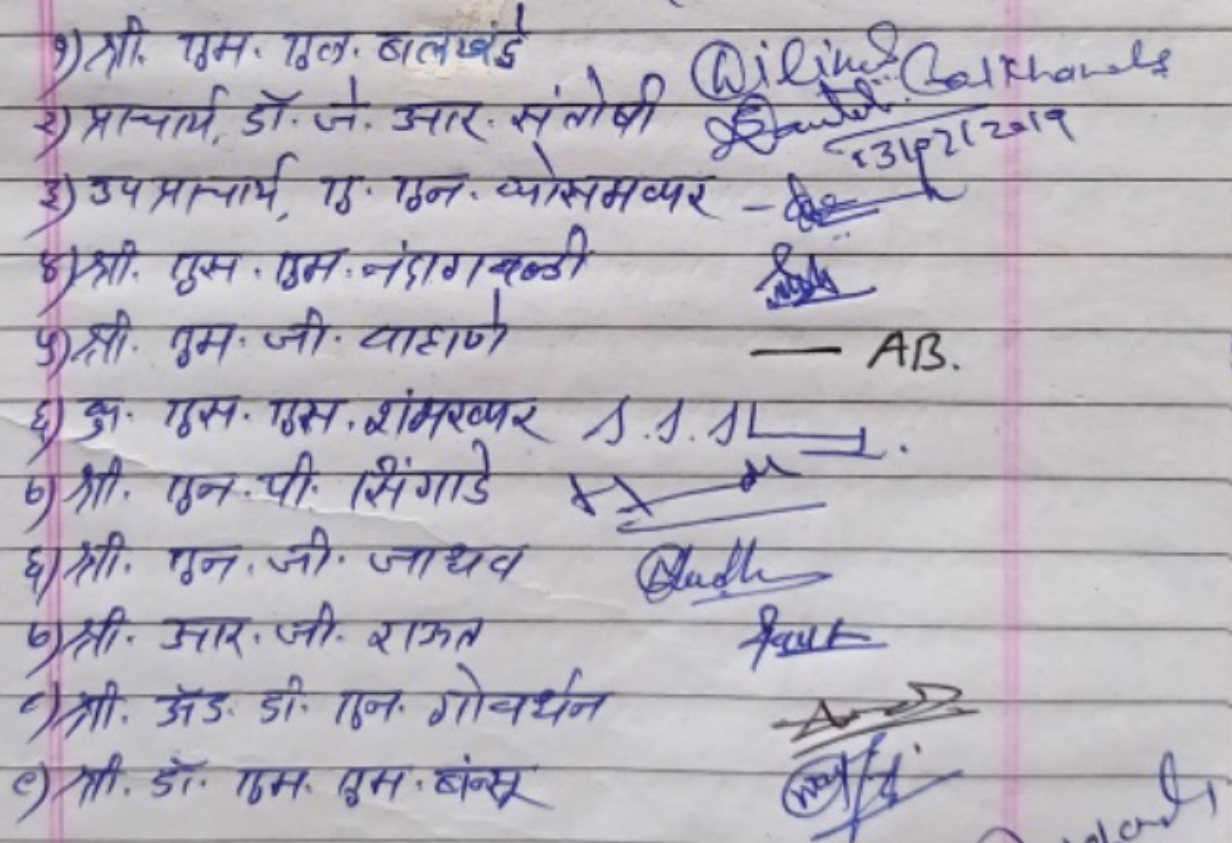 १) श्री. एम. एल. बालखंडे
२) प्राचार्य, डॉ. जे. आर. संतोषी 13/02/2019
३) उपप्राचार्य, ए. एन.
४) श्री. एस. एम. नंदागवळी
५) श्री. एम. जी. वाहाणे — AB.
६) एस. एस. शंभरकर
७) श्री. एन. पी. सिंगाडे
६) श्री. एन. जी. जाधव
७) श्री. आर. जी. राऊत
८) श्री. ॲड. डी. एन. गोवर्धन
९) श्री. डॉ. एम. एम. बंन्सू